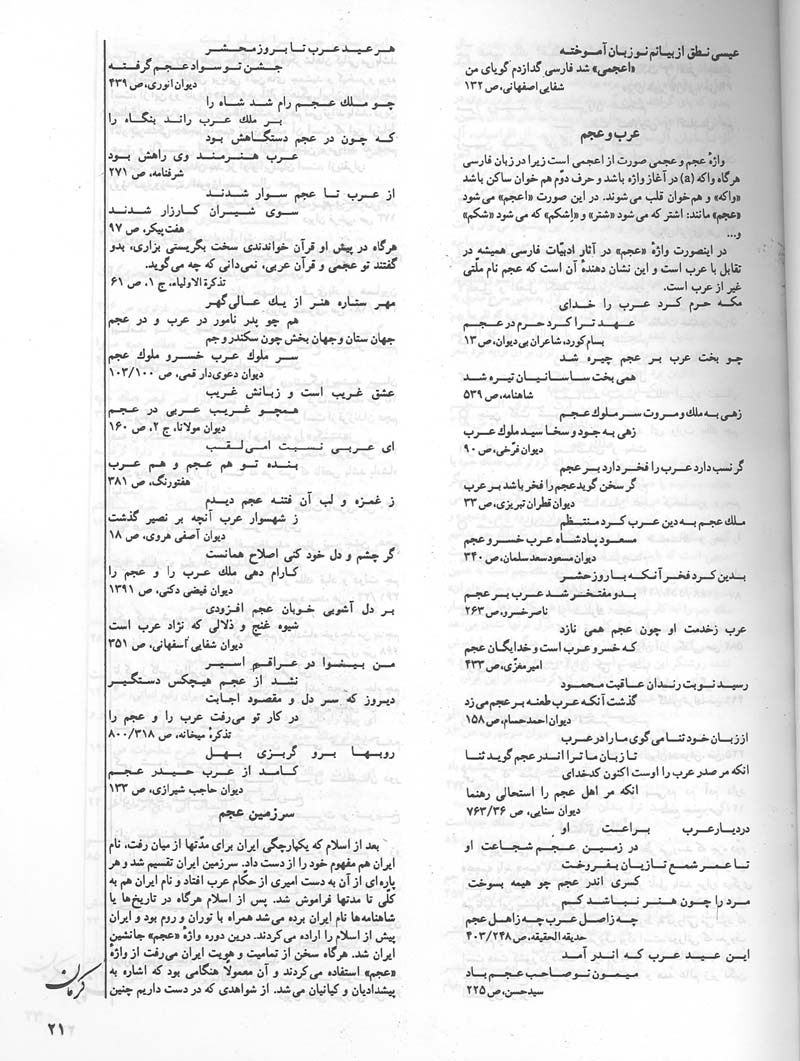 عیسی نطق از بیانم نو زبان آموخته
«اعجمی» شد فارسی گدازدم گویای من
شفایی اصفهانی، ص ۱۳۲
عرب و عجم
واژهٔ عجم و عجمی صورت از اعجمی است زیرا در زبان فارسی
هرگاه واکه (a) در آغاز واژه باشد و حرف دوّم هم خوان ساکن باشد
«واکه» و هم‌خوان قلب می‌شوند. در این صورت «اعجم» می‌شود
«عجم» مانند: اشتر که می‌شود «شتر» و «اِشکم» که می‌شود «شکم»
و...
در اینصورت واژهٔ «عجم» در آثار ادبیّات فارسی همیشه در
تقابل با عرب است و این نشان دهندهٔ آن است که عجم نام ملّتی
غیر از عرب است.
مکه حرم کرد عرب را خدای
عهد ترا کرد حرم در عجم
بسام کورد، شاعران بی‌دیوان، ص ۱۳
چو بخت عرب بر عجم چیره شد
همی بخت ساسانیان تیره شد
شاهنامه، ص ۵۳۹
زهی به ملك و مروت سر ملوك عجم
زهی به جود و سخا سید ملوك عرب
دیوان فرّخی، ص ۹۰
گر نسب دارد عرب را فخر دارد بر عجم
گر سخن گوید عجم را فخر باشد بر عرب
دیوان قطران تبریزی، ص ۳۳
ملك عجم به دین عرب کرد منتظم
مسعود پادشاه عرب خسرو عجم
دیوان مسعود سعد سلمان، ص ۳۴۰
بدین کرد فخر آنکه با روز حشر
بدو مفتخر شد عرب بر عجم
ناصر خسرو، ص ۲۶۳
عرب زخدمت او چون عجم همی نازد
که خسرو عرب است و خدایگان عجم
امیر معزّی، ص ۴۳۳
رسید نوبت رندان عاقبت محمود
گذشت آنکه عرب طعنه بر عجم می‌زد
دیوان احمد حسام، ص ۱۵۸
از زبان خود ثنا می‌گوی ما را در عرب
تا زبان ما ترا اندر عجم گوید ثنا
انکه مر صدر عرب را اوست اکنون کدخدای
انکه مر اهل عجم را استحالی رهنما
دیوان سنایی، ص ۷۶۳/۳۶
در دیار عرب براعت او
در زمین عجم شجاعت او
تا عمر شمع تازیان بفروخت
کسری اندر عجم چو هیمه بسوخت
مرد را چون هنر نباشد کم
چه زاصل عرب چه زاهل عجم
حدیقه الحقیقه، ص ۴۰۳/۲۴۸
این عید عرب که اندر آمد
میمون تو صاحب عجم باد
سید حسن، ص ۲۲۵
هر عید عرب تا بروز محشر
جشن تو سواد عجم گرفته
دیوان انوری، ص ۴۳۹
چو ملك عجم رام شد شاه را
بر ملك عرب راند بنگاه را
که چون در عجم دستگاهش بود
عرب هنرمند وی راهش بود
شرفنامه، ص ۲۷۱
از عرب تا عجم سوار شدند
سوی شیران کارزار شدند
هفت پیکر، ص ۹۷
هرگاه در پیش او قرآن خواندندی سخت بگریستی بزاری، بدو
گفتند تو عجمی و قرآن عربی، نمی‌دانی که چه می‌گوید.
تذکرة الاولیاء، ج ۱، ص ۶۱
مهر ستاره هنر از یك عالی گهر
هم چو پدر نامور در عرب و در عجم
جهان ستان و جهان بخش چون سکندر و جم
سر ملوك عرب خسرو ملوك عجم
دیوان دعوی‌دار قمی، ص ۱۰۳/۱۰۰
عشق غریب است و زبانش غریب
همچو غریب عربی در عجم
دیوان مولانا، ج ۲، ص ۱۶۰
ای عربی نسبت امی لقب
بنده تو هم عجم و هم عرب
هفتورنگ، ص ۳۸۱
ز غمزه و لب آن فتنه عجم دیدم
ز شهسوار عرب آنچه بر نصیر گذشت
دیوان آصفی هروی، ص ۱۸
گر چشم و دل خود کنی اصلاح همانست
کارام دهی ملك عرب را و عجم را
دیوان فیضی دکنی، ص ۱۳۹۱
بر دل آشوبی خوبان عجم افزودی
شیوه غنج و دلالی که نژاد عرب است
دیوان شفایی اسفهانی، ص ۳۵۱
من بینوا در عراقم اسیر
نشد از عجم هیچکس دستگیر
دیروز که سر دل و مقصود اجابت
در کار تو می‌رفت عرب را و عجم را
تذکرهٔ میخانه، ص ۸۰۰/۳۱۸
روبها برو گربزی بهل
کامد از عرب حیدر عجم
دیوان حاجب شیرازی، ص ۱۳۳
سرزمین عجم
بعد از اسلام که یکپارچگی ایران برای مدّتها از میان رفت، نام
ایران هم مفهوم خود را از دست داد. سرزمین ایران تقسیم شد و هر
پاره‌ای از آن به دست امیری از حکّام عرب افتاد و نام ایران هم به
کلی تا مدتها فراموش شد. پس از اسلام هرگاه در تاریخ‌ها یا
شاهنامه‌ها نام ایران برده می‌شد همراه با توران و روم بود و ایران
پیش از اسلام را اراده می‌کردند. درین دوره واژهٔ «عجم» جانشین
ایران شد. هرگاه سخن از تمامیت و هویت ایران می‌رفت از واژهٔ
«عجم» استفاده می‌کردند و آن معمولاً هنگامی بود که اشاره به
پیشدادیان و کیانیان می‌شد. از شواهدی که در دست داریم چنین
کرمان
۲۱